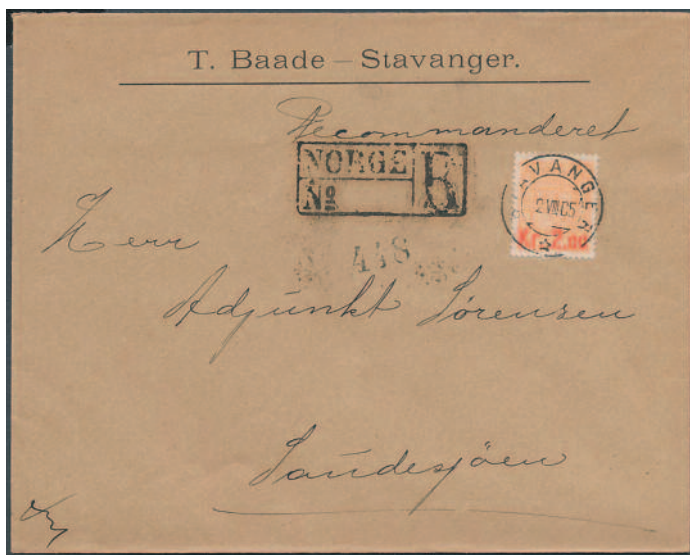 T. Baade – Stavanger.
Recommanderet
NORGE R
No
448
STAVANGER
2 VIII 05
Kr. 2.00
Herr
Adjunkt Sörensen
Sandesjöen